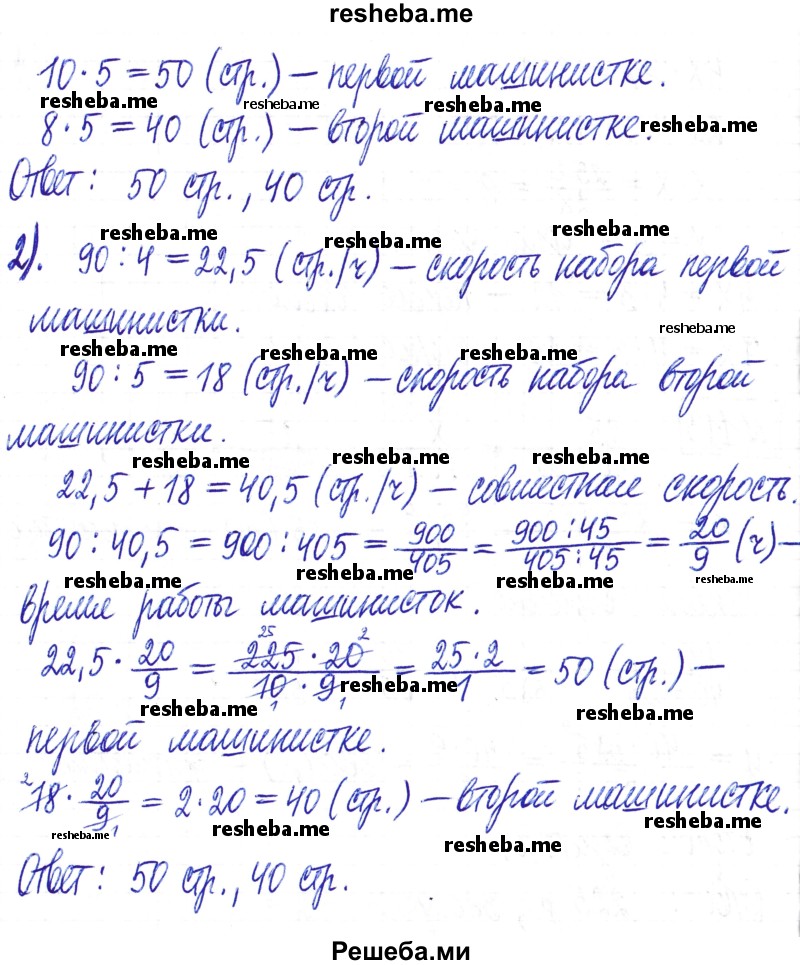 resheba.me
10 · 5 = 50 (стр.) – первой машинистке.
resheba.me resheba.me resheba.me
8 · 5 = 40 (стр.) – второй машинистке. resheba.me
Ответ: 50 стр., 40 стр.
resheba.me resheba.me resheba.me
2). 90 : 4 = 22,5 (стр./ч) – скорость набора первой
машинистки.
resheba.me
resheba.me resheba.me resheba.me
90 : 5 = 18 (стр./ч) – скорость набора второй
машинистки.
resheba.me resheba.me resheba.me
22,5 + 18 = 40,5 (стр./ч) – совместная скорость.
90 : 40,5 = 900 : 405 = 900/405 = 900 : 45/405 : 45 = 20/9 (ч) –
resheba.me resheba.me resheba.me resheba.me
время работы машинисток.
22,5 · 20/9 = 225 · 20/10 · 9 = 25 · 2/1 = 50 (стр.) –
25 2 1 1
resheba.me
resheba.me resheba.me
первой машинистке.
18 · 20/9 = 2 · 20 = 40 (стр.) – второй машинистке.
2 1
resheba.me resheba.me resheba.me
resheba.me
Ответ: 50 стр., 40 стр.
Решеба.ми